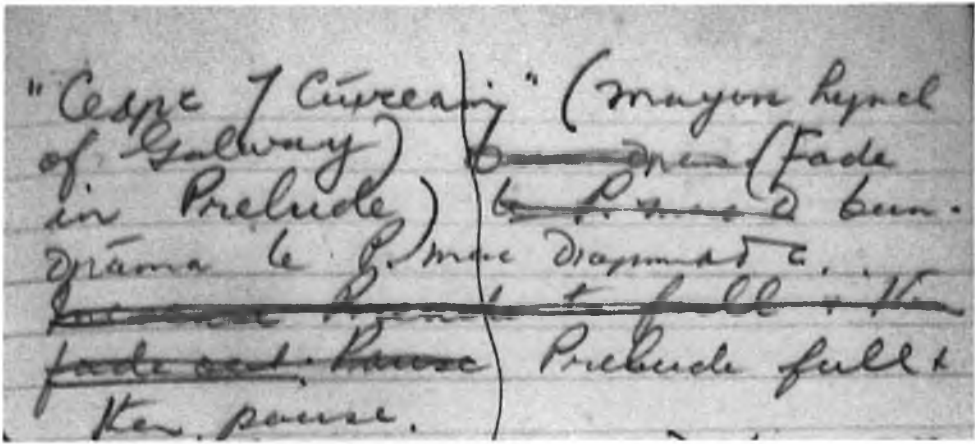 "Ceart ⁊ " (mayor Lynch
of Galway) (Fade
in Prelude) bun-
dráma le P. mac
full + then
fade out. Pause Prelude full +
then pause.